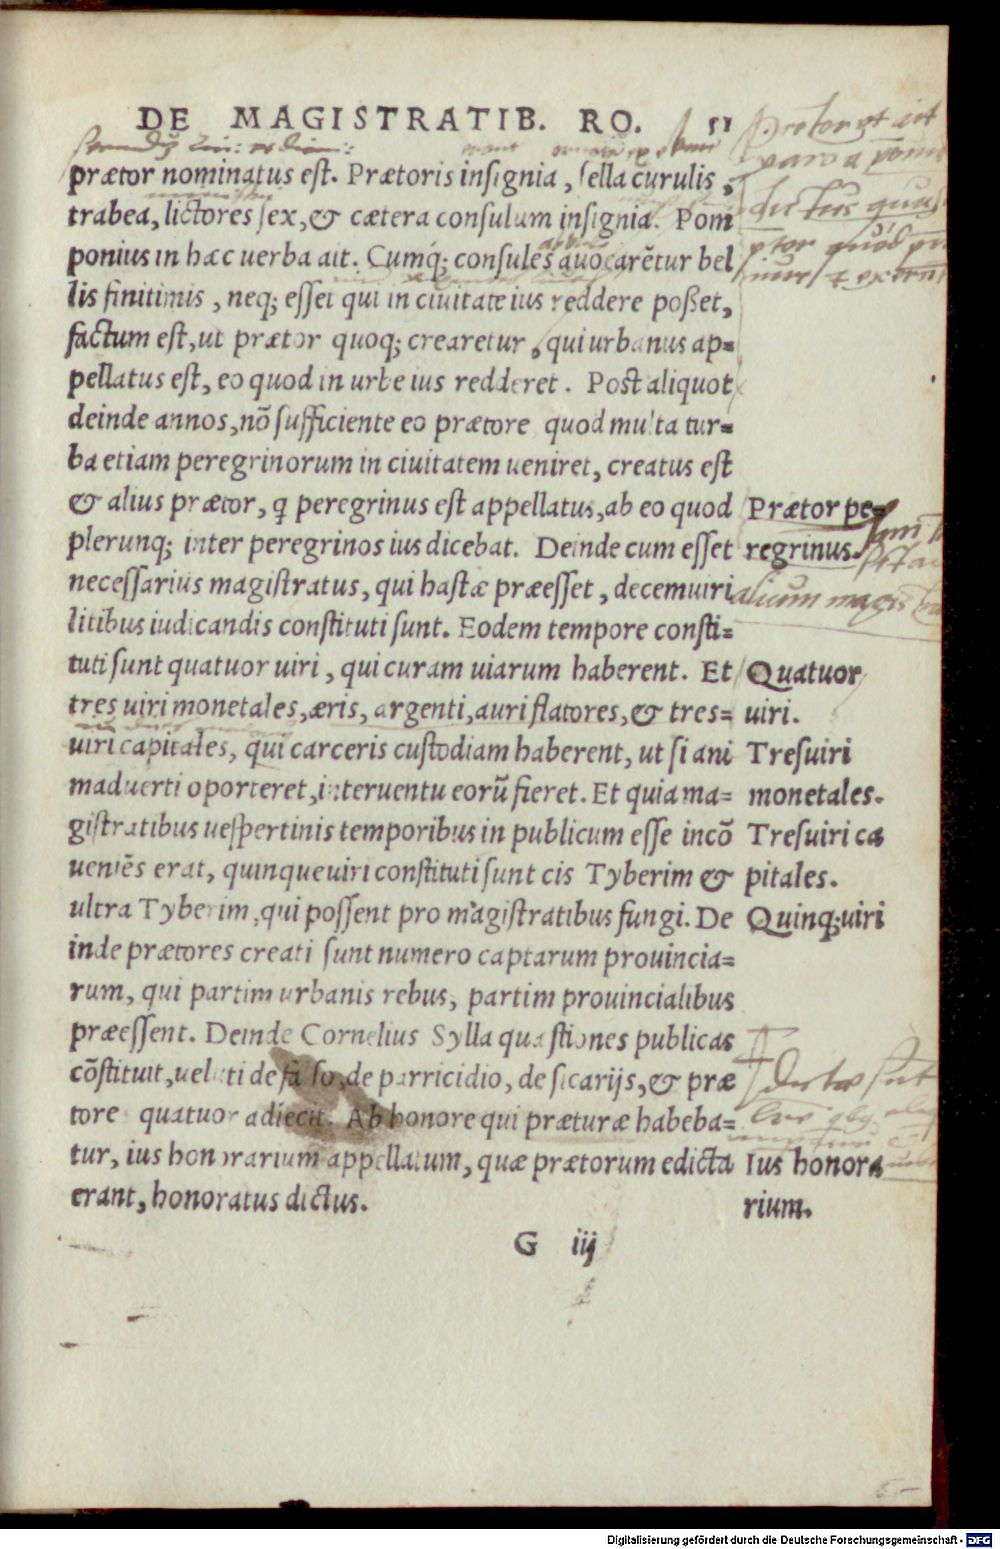 DE MAGISTRATIB. RO. 51
prætor nominatus est. Prætoris insignia, sella curulis,
trabea, lictores sex, & cætera consulum insignia. Pom
ponius in hæc uerba ait. Cumq́; consules auocarētur bel
lis finitimis, neq; esset qui in ciuitate ius reddere poßet,
factum est, ut prætor quoq; crearetur, qui urbanus ap=
pellatus est, eo quod in urbe ius redderet. Post aliquot
deinde annos, nō sufficiente eo prætore quod multa tur=
ba etiam peregrinorum in ciuitatem ueniret, creatus est
& alius prætor, q peregrinus est appellatus, ab eo quod
Prætor pe=
plerunq; inter peregrinos ius dicebat. Deinde cum esset
regrinus.
necessarius magistratus, qui hastæ præesset, decemuiri
litibus iudicandis constituti sunt. Eodem tempore consti=
tuti sunt quatuor uiri, qui curam uiarum haberent. Et
Quatuor
tres uiri monetales, æris, argenti, auri flatores, & tres=
uiri.
uiri capitales, qui carceris custodiam haberent, ut si ani
Tresuiri
maduerti oporteret, interuentu eorū fieret. Et quia ma=
monetales.
gistratibus uespertinis temporibus in publicum esse incō
Tresuiri ca
ueniēs erat, quinqueuiri constituti sunt cis Tyberim &
pitales.
ultra Tyberim, qui possent pro magistratibus fungi. De
Quinq;uiri
inde prætores creati sunt numero captarum prouincia=
rum, qui partim urbanis rebus, partim prouincialibus
præessent. Deinde Cornelius Sylla quæstiones publicas
cōstituit, ueluti de falso, de parricidio, de sicarijs, & præ
tores quatuor adiecit. Ab honore qui præturæ habeba=
tur, ius honorarium appellatum, quæ prætorum edicta
Ius honora
erant, honoratus dictus.
rium.
G iij
Digitalisierung gefördert durch die Deutsche Forschungsgemeinschaft - DFG